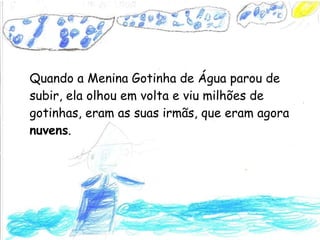 Quando a Menina Gotinha de Água parou de
subir, ela olhou em volta e viu milhões de
gotinhas, eram as suas irmãs, que eram agora
nuvens.